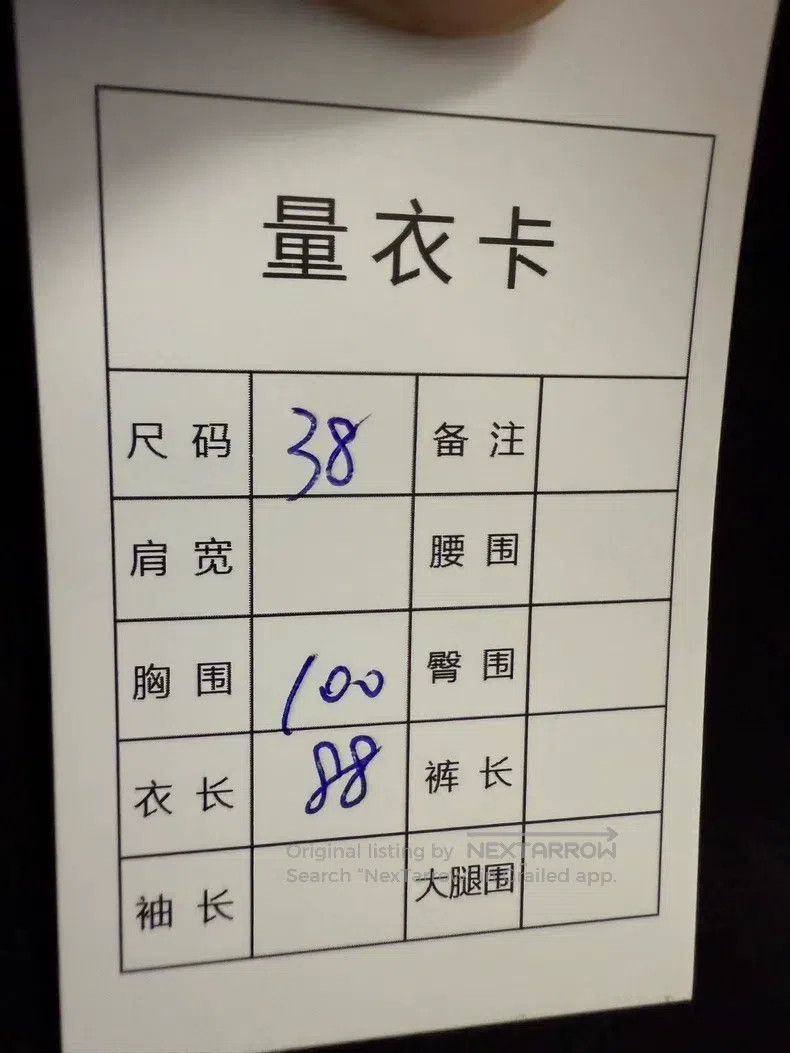 量衣卡
尺码 38 备注
肩宽 腰围
胸围 100 臀围
衣长 88 裤长
Original listing by NEXTARROW
Search "NexTarrow" Grailed app.
袖长 大腿围